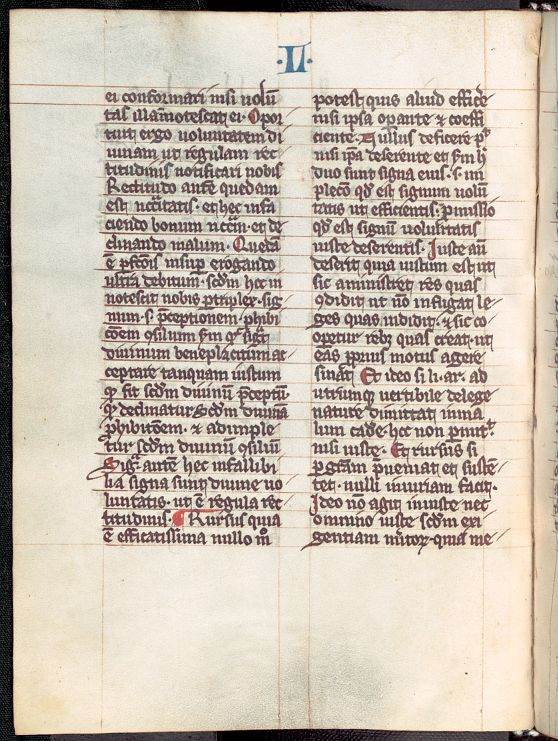 ·II·
ei conformari nisi uolū
tas illa innotescat ei. Opor
tuit ergo uoluntatem di
uinam ut regulam rec
titudinis notificari nobis
Rectitudo autē quedam
est nccitatis. et hec in fa
ciendo bonum nccm. et de
clinando malum. Quedā
ē pfcōis insup erogando
ultra debitum. scdm hec in
notescit nobis p triplex sig
num. s. pceptionem. phibi
cōem
diuinum beneplacitum ac
ceptare tanquam iustum
qr fit scdm diuinū pceptū
qr declinatur scdm diuinā
phibitōem. et adimple
tur scdm diuinū ɔsiliū
Sigª autem hec infallibi
lia signa sunt diuine uo
luntatis. ut ē regula rec
titudinis. ¶ Rursus quia
ē efficatissima nullo mº
potest quis aliud efficē
nisi ipsa opante et coeffi
ciente. Nullus deficere pt
nisi ipā deserente et scdm h
duo sunt signa eius. s. im
pleco qd est signum uolū
tatis ut efficientis. pmissio
qd est signū uoluntatis
iuste deserentis. Iuste aū
deserit quia iustum est ut
sic aministret res quas
ɔdidit ut nō infrīgat le
ges quas indidit. et sic co
opetur reb quas creat. ut
eas pprios motus agere
sinat. Et ideo si li. ar. ad
utrumque uertibile de lege
nature dimittat in ma
lum cade. hec non pmit.
nisi iuste. Et rursus si
p grām pueniat et suste
tet. nulli iniuriam facit.
Ideo nō agit iniuste nec
omnino iuste scdm exi
gentiam mitor. quia me